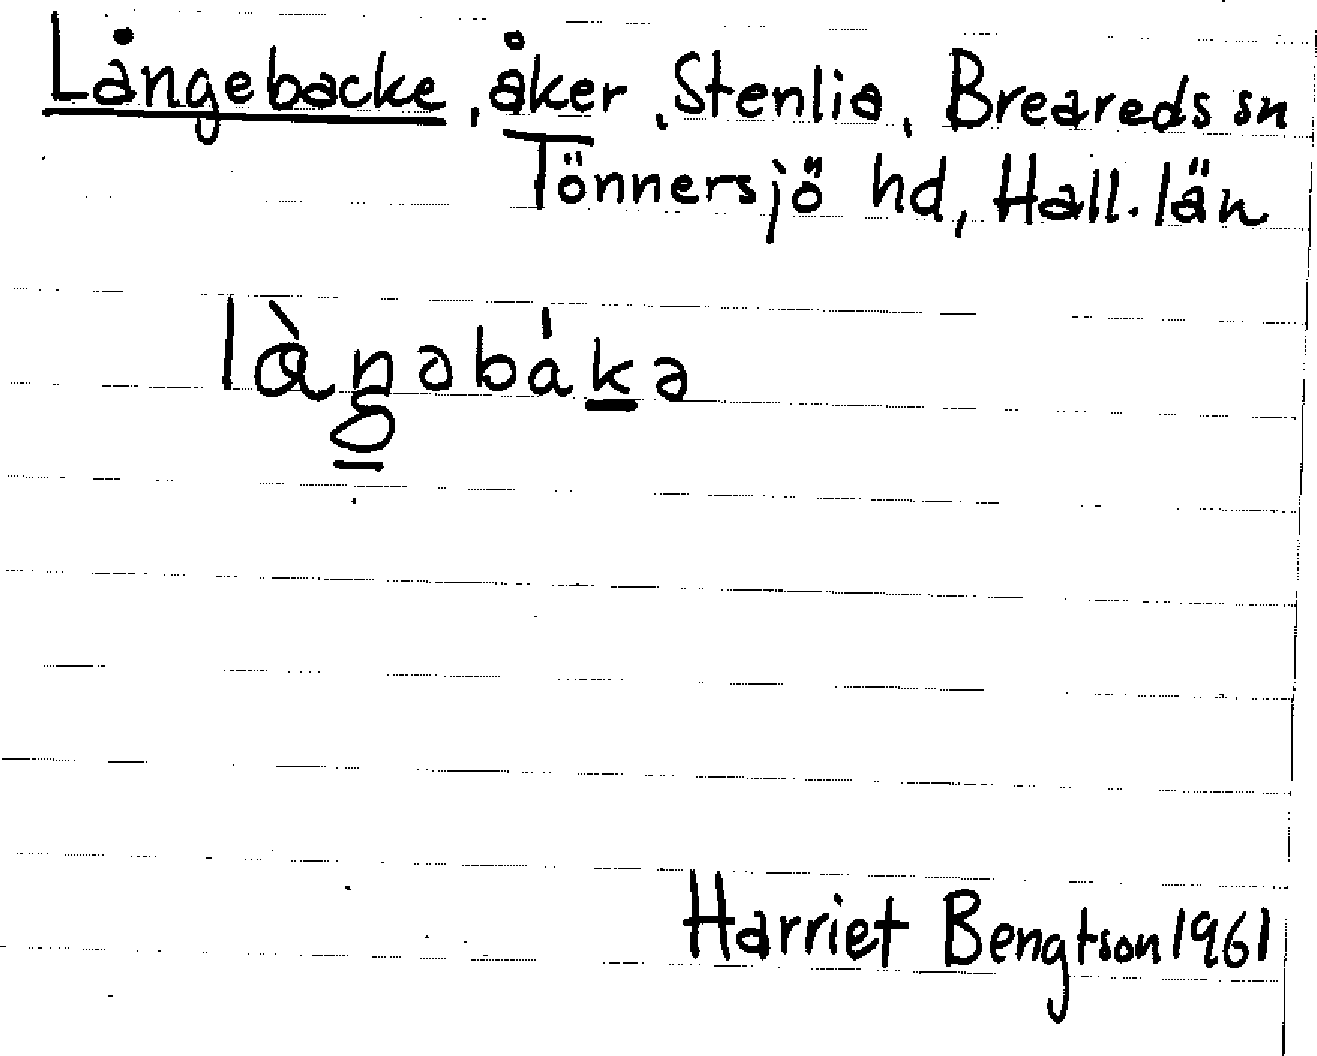 Långebacke, åker, Stenlia, Breareds sn
Tönnersjö hd, Hall. län
làŋəbákə
Harriet Bengtson 1961